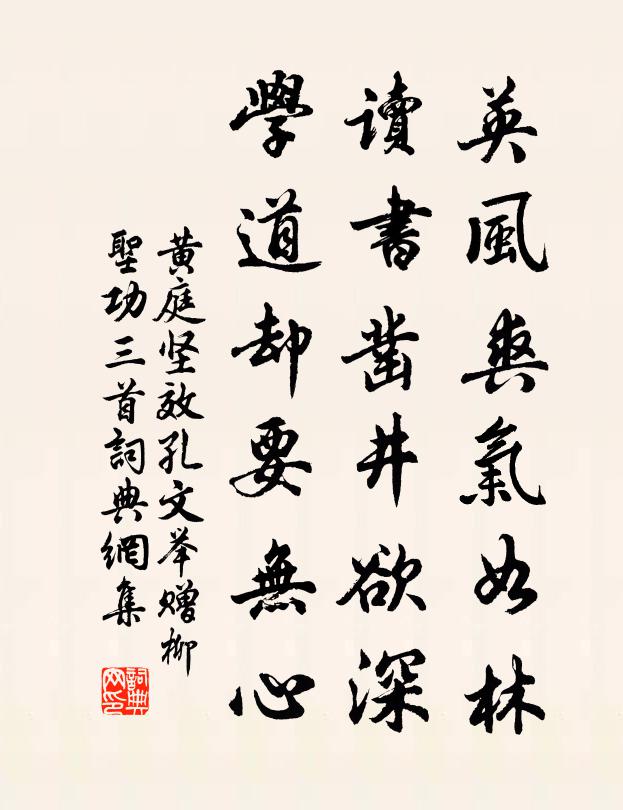 英風爽氣如林
讀書鑿井欲深
學道却要無心
黄庭坚效孔文举赠柳
聖功三首詞典網集
詞典
网印